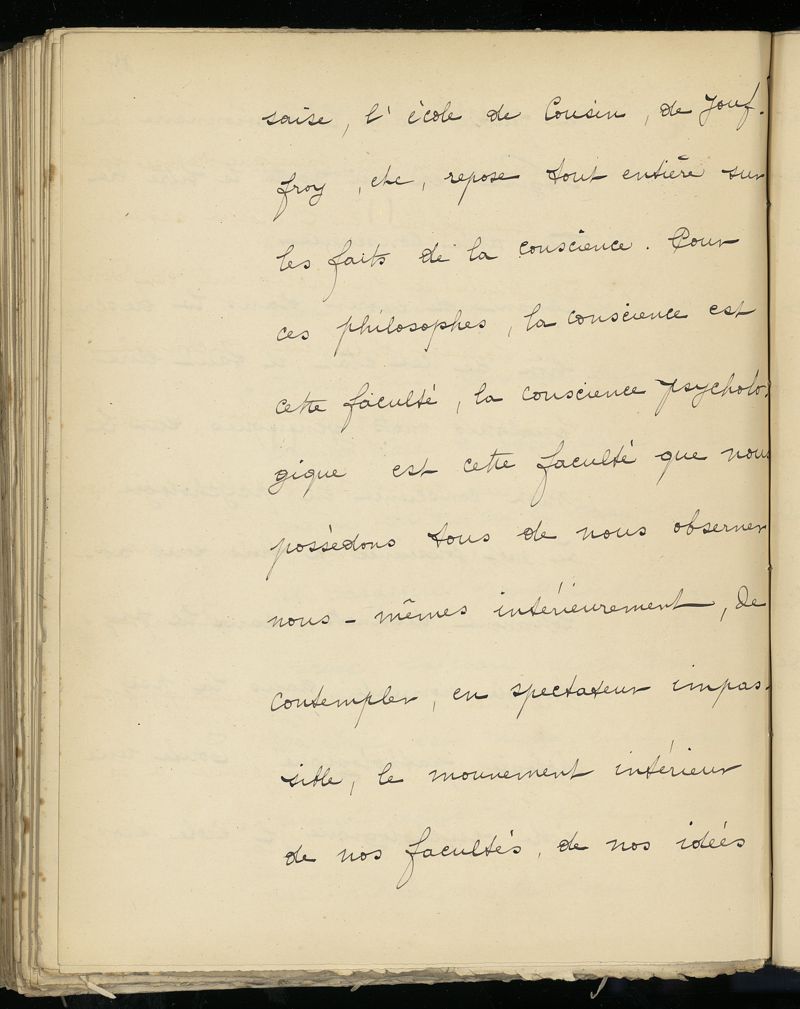 saise, l'école de Cousin, de Jouf-
froy, etc, repose tout entière sur
les faits de la conscience. Pour
ces philosophes, la conscience est
cette faculté, la conscience psycholo-
gique est cette faculté que nous
possédons tous de nous observer
nous-mêmes intérieurement, de
contempler, en spectateur impas-
sible, le mouvement intérieur
de nos facultés, de nos idées